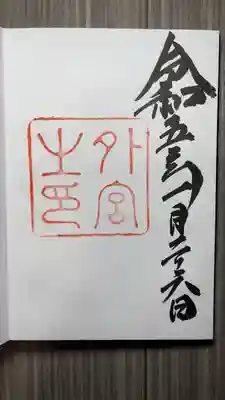 令和五年一月二十六日
外宮
之印